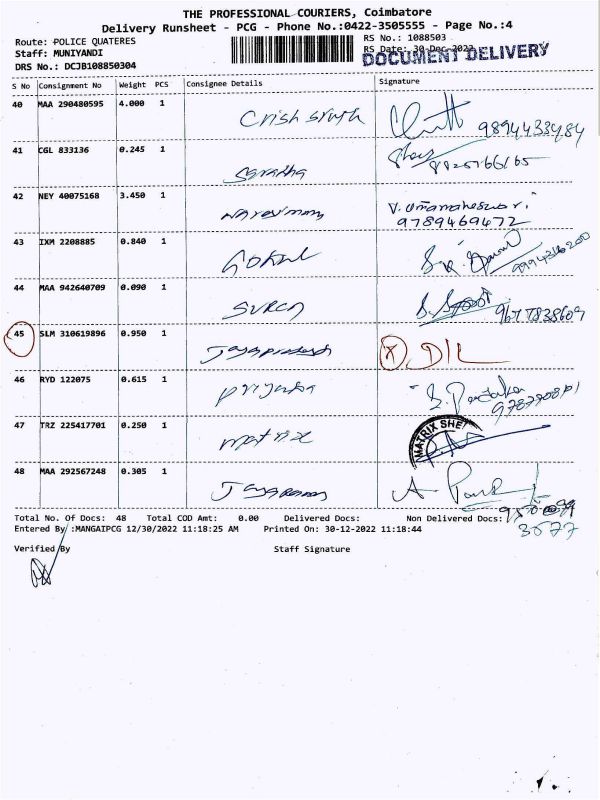 THE PROFESSIONAL COURIERS, Coimbatore
Delivery Runsheet - PCG - Phone No.:0422-3505555 - Page No.:4
Route: POLICE QUATERES
RS No.: 1088503
Staff: MUNIYANDI
RS Date: 30-Dec-2022
DOCUMENT DELIVERY
DRS No.: DCJB108850304
S No Consignment No Weight PCS Consignee Details Signature
40 MAA 290480595 4.000 1 Crish singh 9894433484
41 CGL 833136 0.245 1
42 NEY 40075168 3.450 1 V. Umamaheswari.
9789469472
43 IXM 2208885 0.840 1 Gokul
44 MAA 942640709 0.090 1 9677838609
45 SLM 310619896 0.950 1 Jayaprakash X D/L
46 RYD 122075 0.615 1 Priyanka
47 TRZ 225417701 0.250 1 matrix MATRIX SHE
48 MAA 292567248 0.305 1
Total No. Of Docs: 48 Total COD Amt: 0.00 Delivered Docs: Non Delivered Docs:
Entered By :MANGAIPCG 12/30/2022 11:18:25 AM Printed On: 30-12-2022 11:18:44
3677
Verified By Staff Signature